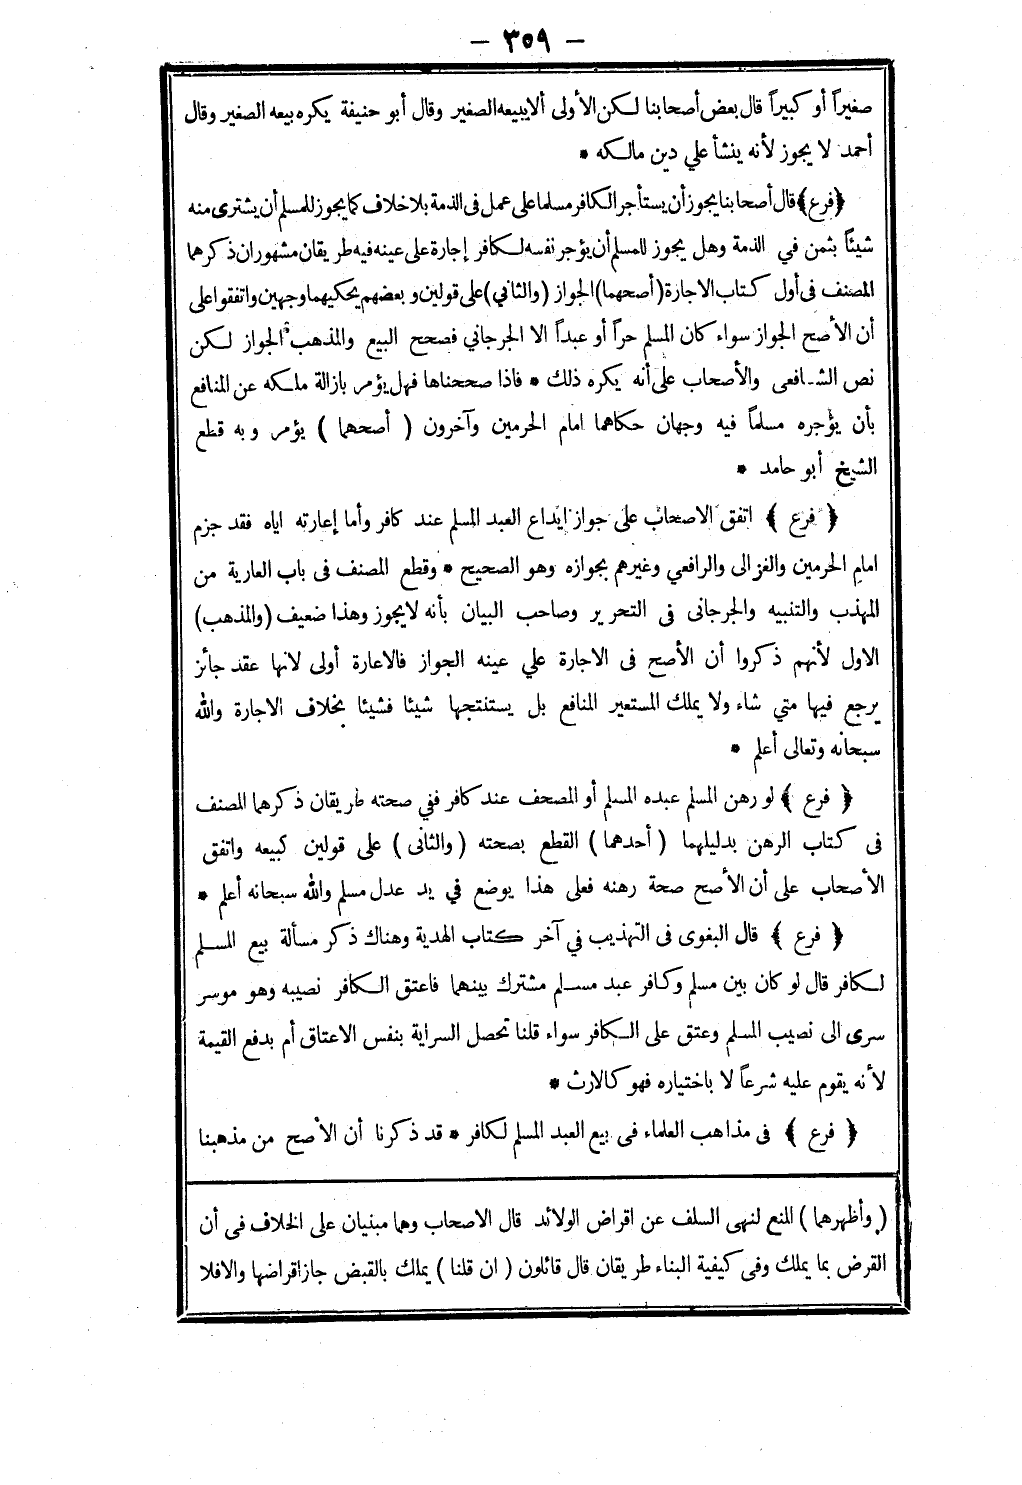 — ٣٥٩ —
صغيراً أو كبيراً قال بعض أصحابنا لكن الأولى ألايبيعه الصغير وقال أبو حنيفة يكره بيعه الصغير وقال
أحمد لا يجوز لأنه ينشأ علي دين مالكه *
﴿فرع﴾ قال أصحابنا يجوز أن يستأجر الكافر مسلما على عمل فى الذمة بلا خلاف كما يجوز للمسلم أن يشترى منه
شيئاً بثمن في الذمة وهل يجوز للمسلم أن يؤجر نفسه لكافر إجارة على عينه فيه طريقان مشهوران ذكرهما
المصنف فى أول كتاب الاجارة (أصحهما) الجواز (والثاني) على قولين وبعضهم يحكيهما وجهين واتفقوا على
أن الأصح الجواز سواء كان المسلم حراً أو عبداً الا الجرجاني فصحح البيع والمذهب الجواز لكن
نص الشافعى والأصحاب على أنه يكره ذلك * فاذا صححناها فهل يؤمر بازالة ملكه عن المنافع
بأن يؤجره مسلماً فيه وجهان حكاهما امام الحرمين وآخرون ( أصحهما ) يؤمر وبه قطع
الشيخ أبو حامد *
﴿ فرع ﴾ اتفق الاصحاب على جواز ايداع العبد المسلم عند كافر وأما إعارته اياه فقد جزم
امام الحرمين والغزالى والرافعي وغيرهم بجوازه وهو الصحيح * وقطع المصنف فى باب العارية من
المهذب والتنبيه والجرجانى فى التحرير وصاحب البيان بأنه لايجوز وهذا ضعيف (والمذهب)
الاول لأنهم ذكروا أن الأصح فى الاجارة علي عينه الجواز فالاعارة أولى لانها عقد جائز
يرجع فيها متي شاء ولا يملك المستعير المنافع بل يستنتجها شيئا فشيئا بخلاف الاجارة والله
سبحانه وتعالى أعلم *
﴿ فرع ﴾ لو رهن المسلم عبده المسلم أو المصحف عند كافر ففي صحته طريقان ذكرهما المصنف
فى كتاب الرهن بدليلهما ( أحدهما ) القطع بصحته ( والثانى ) على قولين كبيعه واتفق
الأصحاب على أن الأصح صحة رهنه فعلى هذا يوضع في يد عدل مسلم والله سبحانه أعلم *
﴿ فرع ﴾ قال البغوى فى التهذيب في آخر كتاب الهدية وهناك ذكر مسألة بيع المسلم
لكافر قال لو كان بين مسلم وكافر عبد مسلم مشترك بينهما فاعتق الكافر نصيبه وهو موسر
سرى الى نصيب المسلم وعتق على الكافر سواء قلنا تحصل السراية بنفس الاعتاق أم بدفع القيمة
لأنه يقوم عليه شرعاً لا باختياره فهو كالارث *
﴿ فرع ﴾ فى مذاهب العلماء فى بيع العبد المسلم لكافر * قد ذكرنا أن الأصح من مذهبنا
( وأظهرهما ) المنع لنهى السلف عن اقراض الولائد قال الاصحاب وهما مبنيان على الخلاف فى أن
القرض بما يملك وفى كيفية البناء طريقان قال قائلون ( ان قلنا ) يملك بالقبض جاز اقراضها والافلا